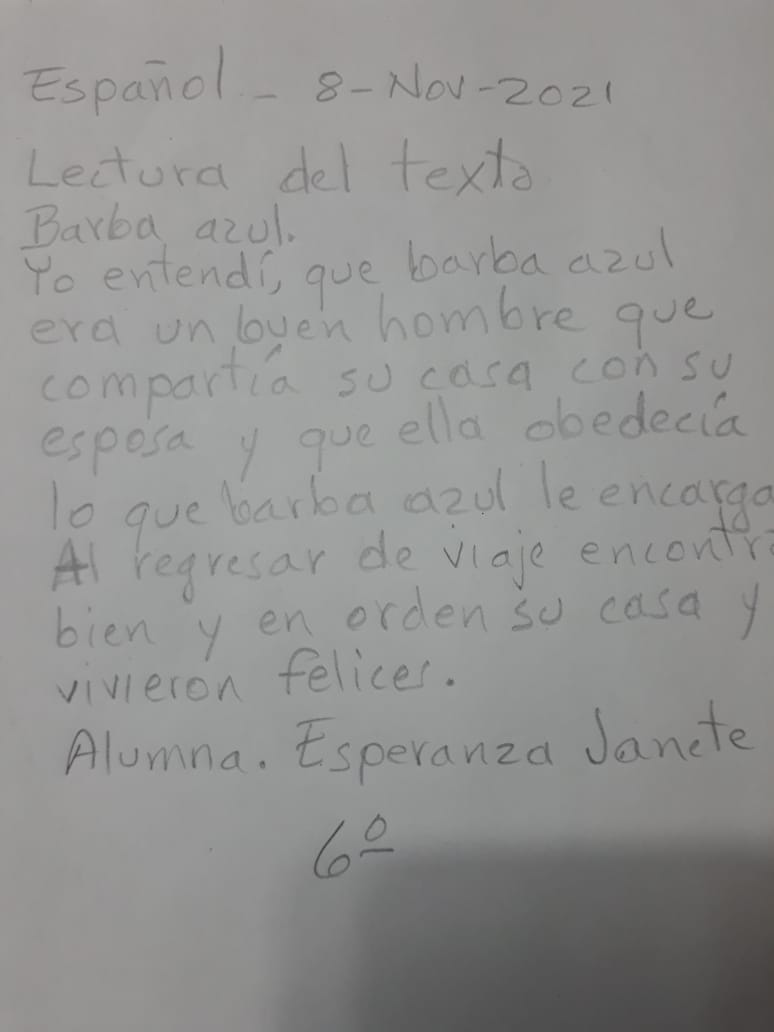 Español - 8-Nov-2021
Lectura del texto
Barba azul.
Yo entendí, que barba azul
era un buen hombre que
compartía su casa con su
esposa y que ella obedecía
lo que barba azul le encarga
Al regresar de viaje encontr
bien y en orden su casa y
vivieron felices.
Alumna. Esperanza Janete
6º